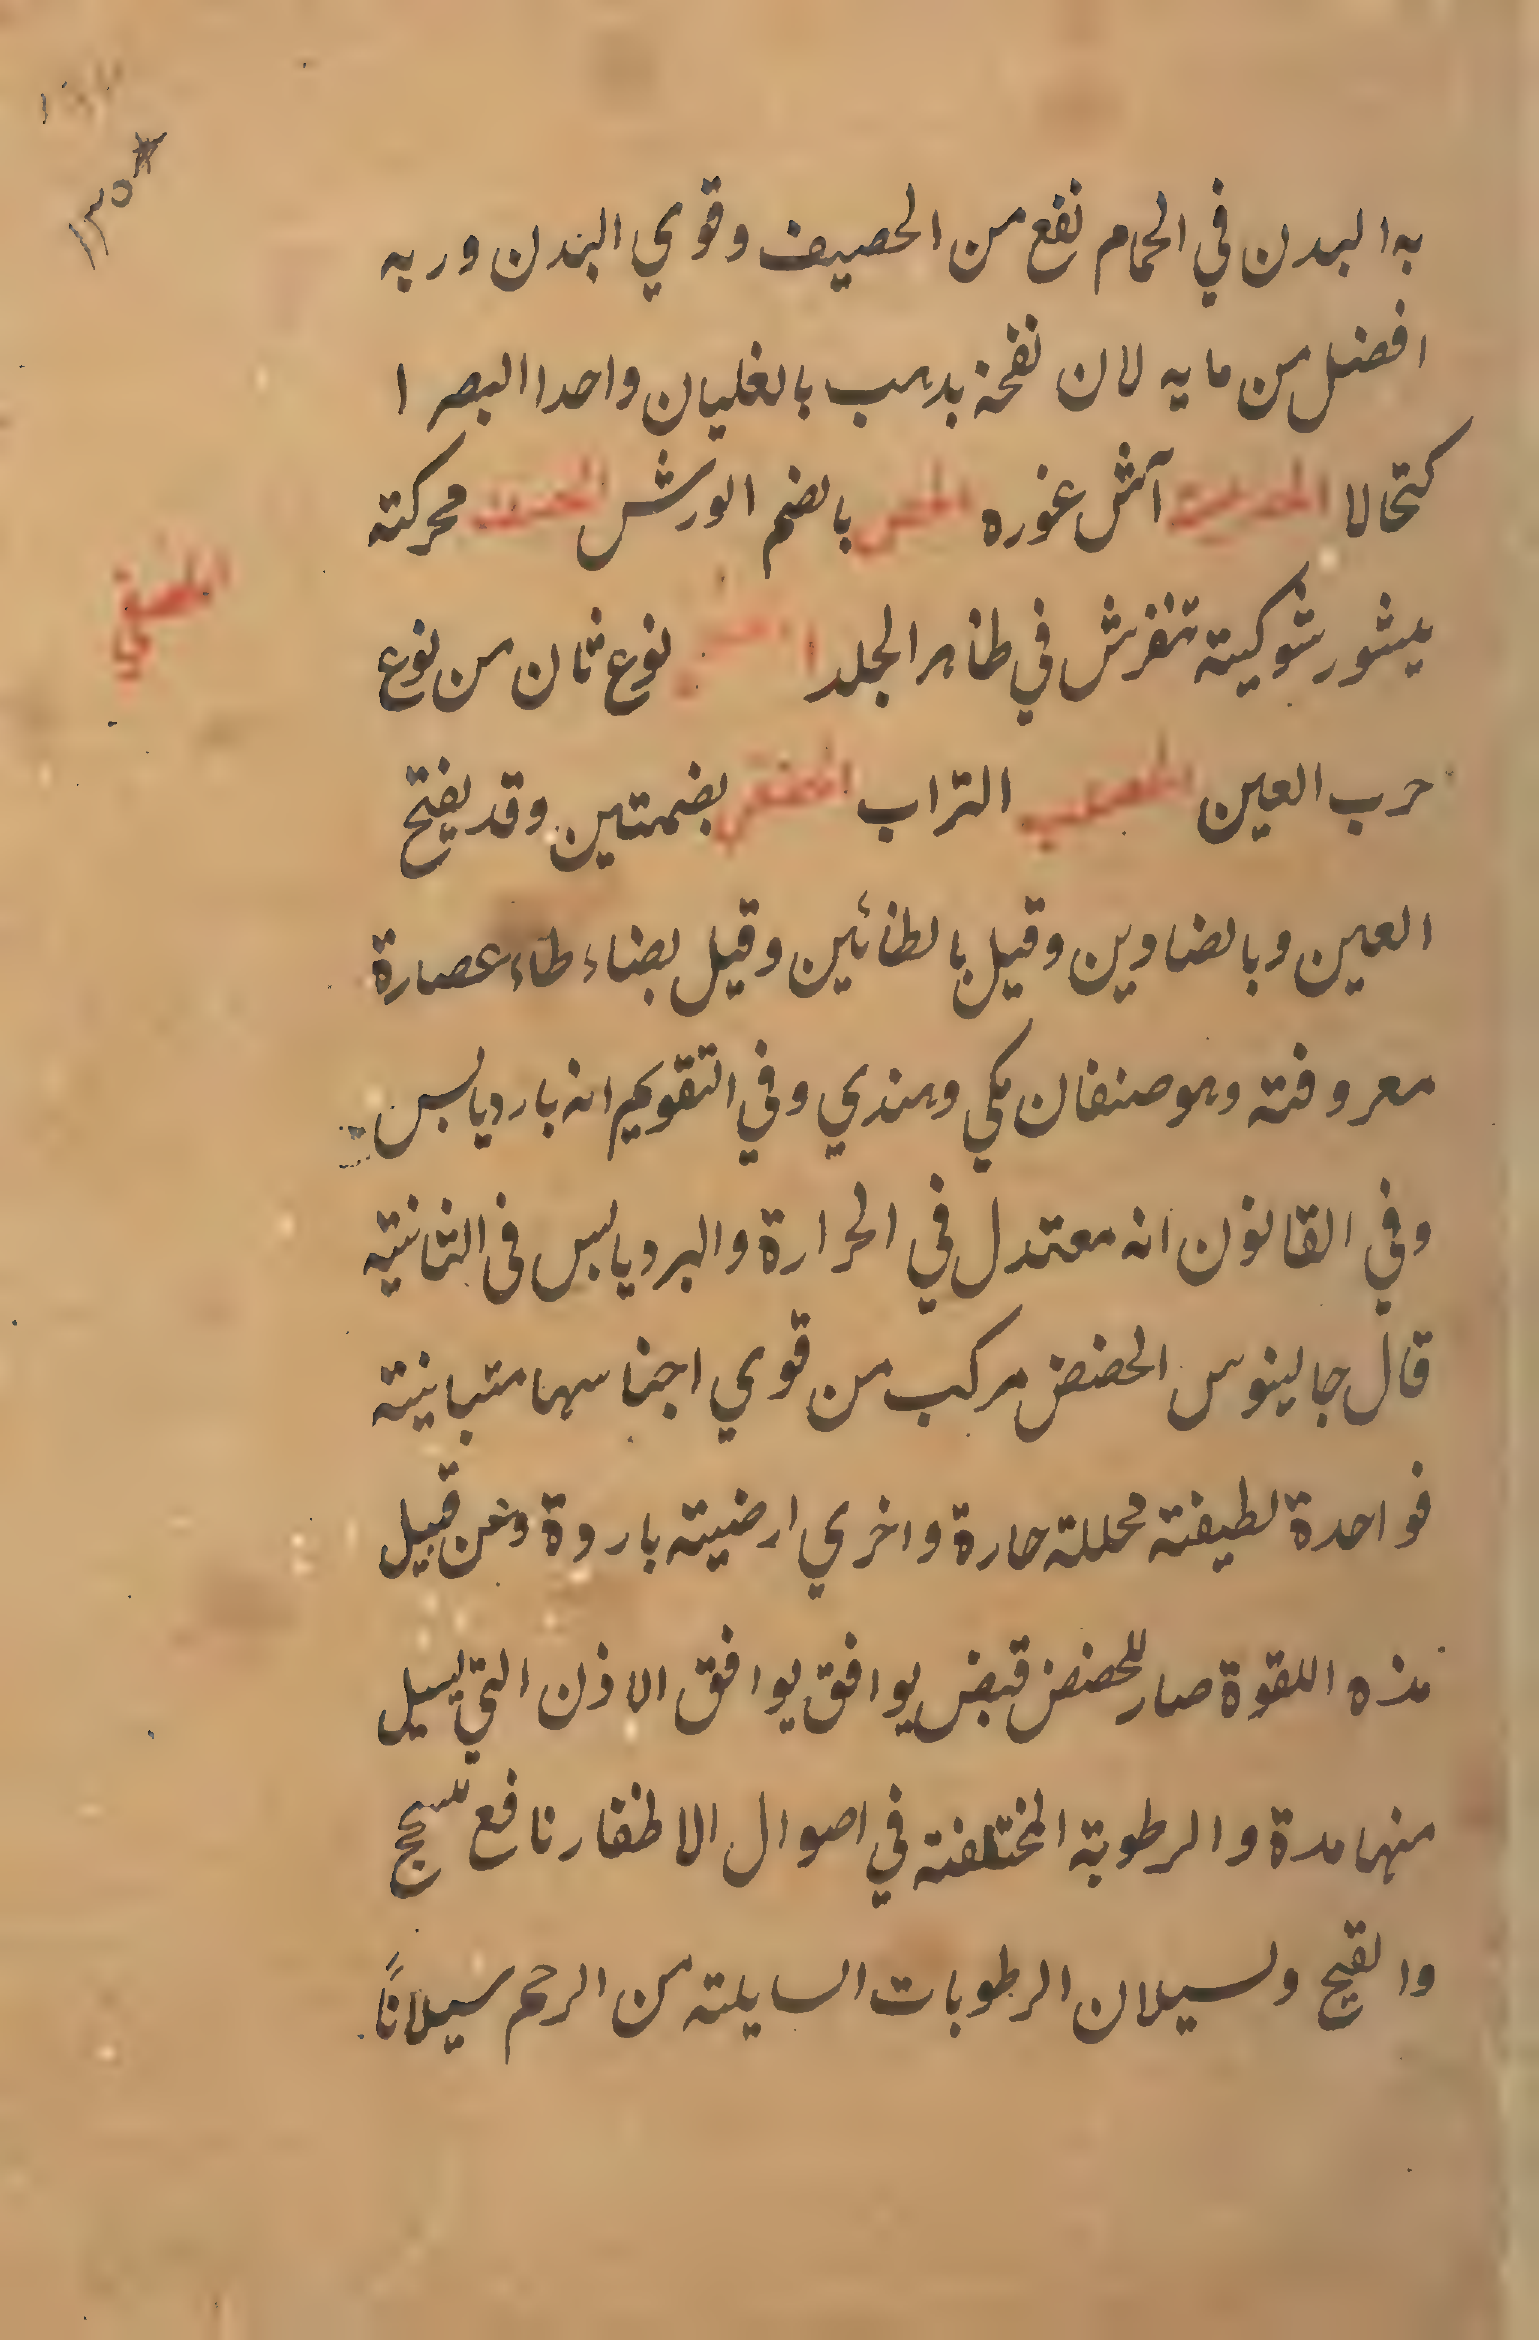 ١٣٥
به البدن في الحمام نفع من الحصيف وقوي البدن وربه
افضل من مايه لان نفحة بدهب بالغليان واحدا البصر ا
كتحالا آش غوره بالضم الورش الحصف محركته
بيشور شوكيته تنفرش في ظاهر الجلد نوع ثان من نوع
حرب العين التراب الحضض بضمتين وقد يفتح
العين وبالضاوين وقيل بالظائين وقيل بضاء ظاء عصارة
معروفته وهو صنفان مكي وهندي وفي التقويم انه بارد يابس
وفي القانون انه معتدل في الحرارة والبرد يابس فى الثانيته
قال جالينوس الحضض مركب من قوي اجناسها متباينته
فواحدة لطيفته محللته حارة واخري ارضيته باروة وعن قبيل
هذه اللقوة صار للحضض قبض يوافق يوافق الاذن التي يسيل
منها مدة والرطوبة المختلفته في اصوال الاظفار نافع للسحج
والقيح ولسيلان الرطوبات السايلته من الرحم سيلاناً